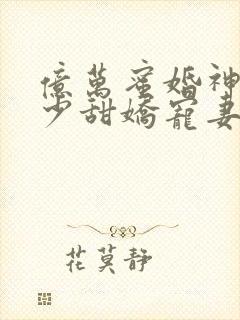 億萬蜜婚神
少甜嬌寵妻
花莫靜